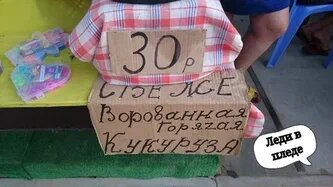 30 р
СВЕЖЕ
Ворованная
Горячая
КУКУРУЗА
Леди в
пледе